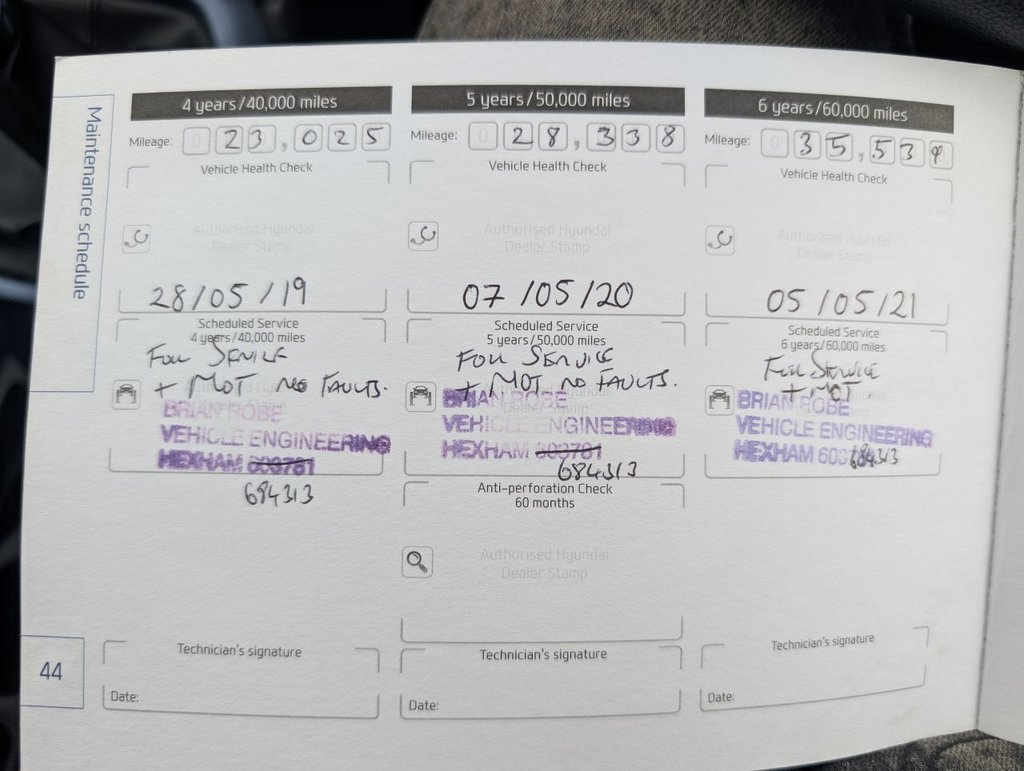 Maintenance schedule
4 years/40,000 miles
Mileage: 0 23,025
Vehicle Health Check
Authorised Hyundai
Dealer Stamp
28/05/19
Scheduled Service
4 years/40,000 miles
FULL SERVICE
+ MOT NO FAULTS.
BRIAN ROBE
VEHICLE ENGINEERING
HEXHAM 603781
684313
Technician's signature
Date:
5 years/50,000 miles
Mileage: 0 28,338
Vehicle Health Check
Authorised Hyundai
Dealer Stamp
07/05/20
Scheduled Service
5 years/50,000 miles
FULL SERVICE
+ MOT NO FAULTS.
BRIAN ROBE
VEHICLE ENGINEERING
HEXHAM 603781
684313
Anti-perforation Check
60 months
Authorised Hyundai
Dealer Stamp
Technician's signature
Date:
6 years/60,000 miles
Mileage: 0 35,539
Vehicle Health Check
Authorised Hyundai
Dealer Stamp
05/05/21
Scheduled Service
6 years/60,000 miles
FULL SERVICE
+ MOT.
BRIAN ROBE
VEHICLE ENGINEERING
HEXHAM
684313
Technician's signature
Date:
44